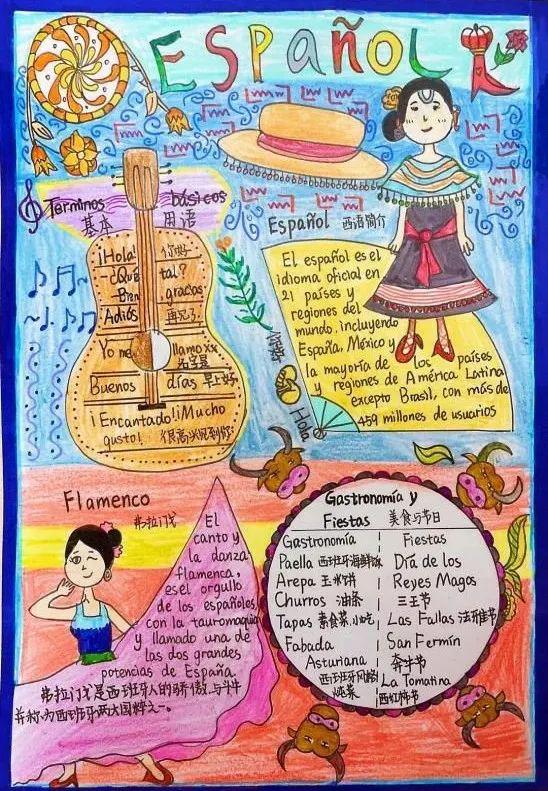 ESPAÑOL
Términos básicos
基本 用语
¡Hola! 你好
-¿Qué tal?
-Bien, gracias
Adiós 再见了
Yo me llamo xx
Buenos días 早上好
¡Encantado!¡Mucho
gusto! 很高兴见到你
Español 西语简介
El español es el
idioma oficial en
21 países y
regiones del
mundo, incluyendo
España, México y
la mayoría de los países
y regiones de América Latina
excepto Brasil, con más de
459 millones de usuarios
Hola
Flamenco
弗拉门戈
El
canto y
la danza
flamenca,
es el orgullo
de los españoles,
con la tauromaquia
y llamado una de
las dos grandes
potencias de España.
弗拉门戈是西班牙人的骄傲,与斗牛
并称为西班牙两大国粹之一。
Gastronomía y
Fiestas 美食与节日
Gastronomía
Paella 西班牙海鲜饭
Arepa 玉米饼
Churros 油条
Tapas 素食菜,小吃
Fabada
Asturiana
西班牙风格
炖菜
Fiestas
Día de los
Reyes Magos
三王节
Las Fallas 法雅节
San Fermín
奔牛节
La Tomatina
西红柿节